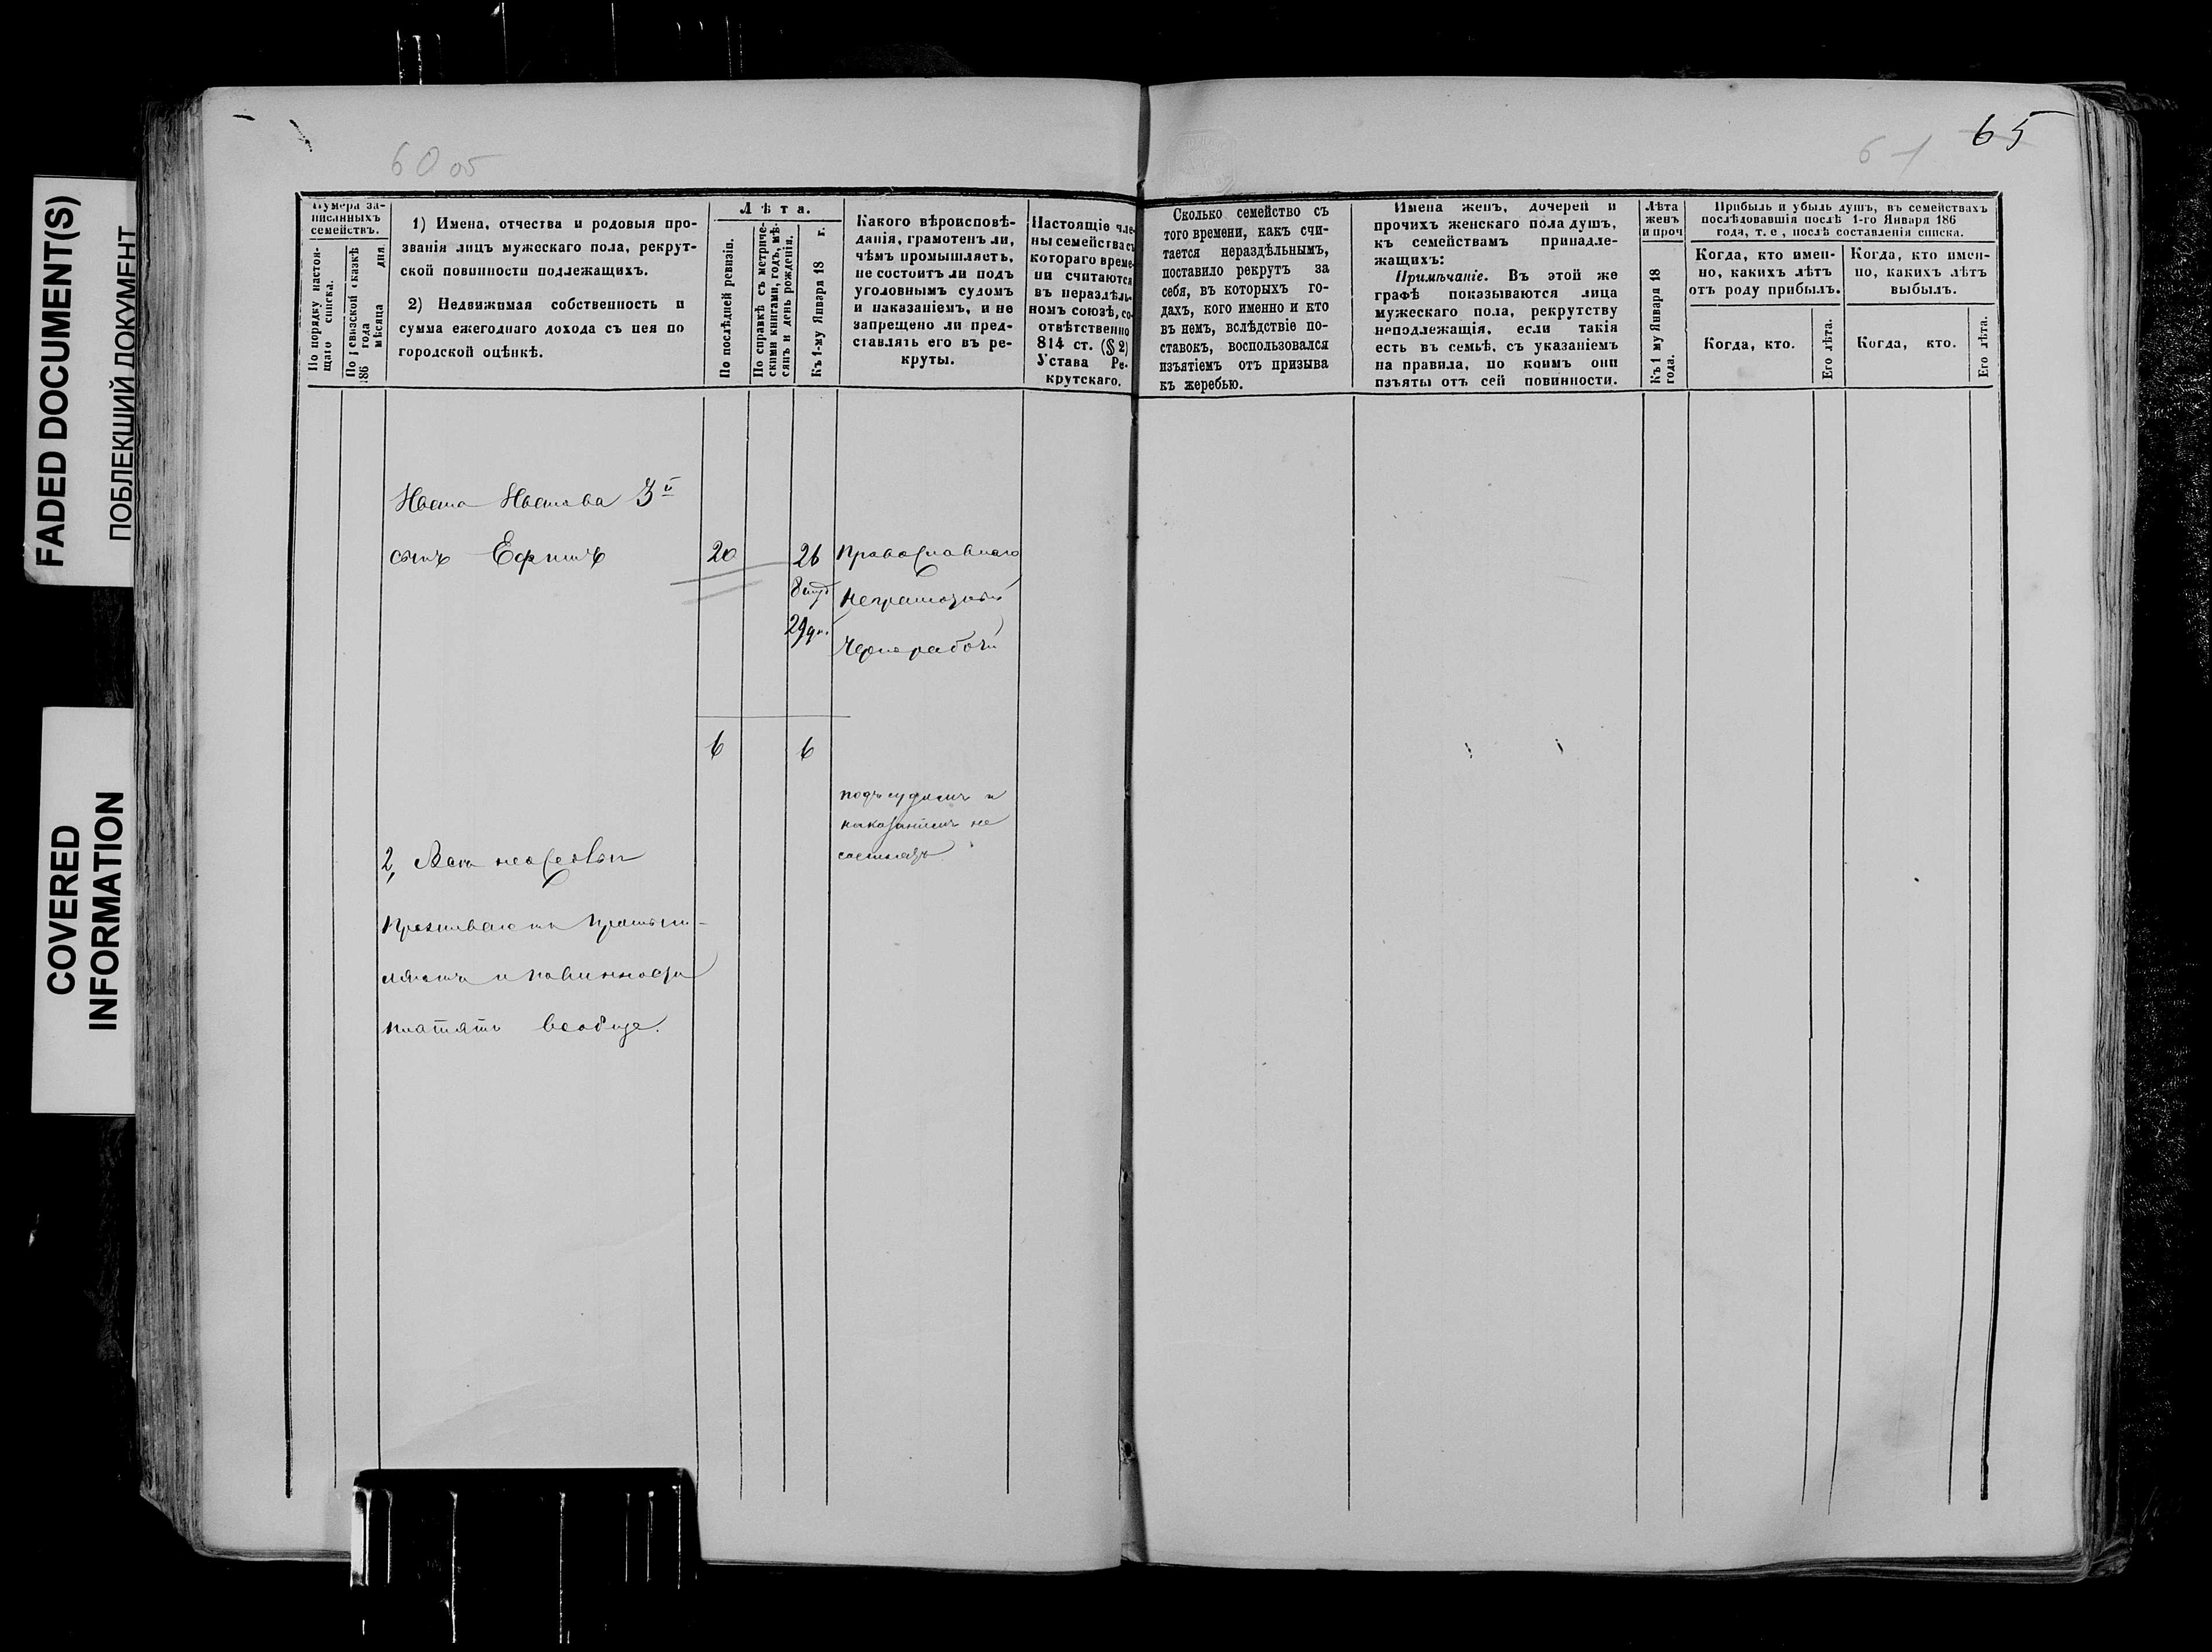 FADED DOCUMENT(S)
ПОБЛЕКШИЙ ДОКУМЕНТ
COVERED
INFORMATION
60 об
61
65
Нумера за-
писанныхъ
семействъ.
По порядку настоя-
щаго списка.
По ревизской сказкѣ
186 года
мѣсяца дня
1) Имена, отчества и родовыя про-
званія лицъ мужескаго пола, рекрут-
ской повинности подлежащихъ.
2) Недвижимая собственность и
сумма ежегоднаго дохода съ нея по
городской оцѣнкѣ.
Лѣта.
По послѣдней ревизіи.
По справкѣ съ метриче-
скими книгами, годъ, мѣ-
сяцъ и день рожденія.
Къ 1-му Января 18 г.
Какого вѣроисповѣ-
данія, грамотенъ ли,
чѣмъ промышляетъ,
не состоитъ ли подъ
уголовнымъ судомъ
и наказаніемъ, и не
запрещено ли пред-
ставлять его въ ре-
круты.
Настоящіе чле-
ны семейства съ
котораго време-
ни считаются
въ нераздѣль-
номъ союзѣ, со-
отвѣтственно
814 ст. (§ 2)
Устава Ре-
крутскаго.
Сколько семейство съ
того времени, какъ счи-
тается нераздѣльнымъ,
поставило рекрутъ за
себя, въ которыхъ го-
дахъ, кого именно и кто
въ немъ, вслѣдствіе по-
ставокъ, воспользовался
изъятіемъ отъ призыва
къ жеребью.
Имена женъ, дочерей и
прочихъ женскаго пола душъ,
къ семействамъ принадле-
жащихъ:
Примѣчаніе. Въ этой же
графѣ показываются лица
мужескаго пола, рекрутству
неподлежащія, если такія
есть въ семьѣ, съ указаніемъ
на правила, по коимъ они
изъяты отъ сей повинности.
Лѣта
женъ
и проч
Къ 1 му Января 18
года.
Прибыль и убыль душъ, въ семействахъ
послѣдовавшія послѣ 1-го Января 186
года, т. е, послѣ составленія списка.
Когда, кто имен-
но, какихъ лѣтъ
отъ роду прибылъ.
Когда, кто имен-
но, какихъ лѣтъ
выбылъ.
Когда, кто.
Его лѣта.
Когда, кто.
Его лѣта.
3й
сынъ Ефимъ
20
26
Православнаго
Неграмотный
29 дн.
Чернорабочій
6
6
подъ судомъ и
наказаніемъ не
состоятъ
2,
Проживаютъ промыш-
ляютъ и повинности
платятъ вообще.